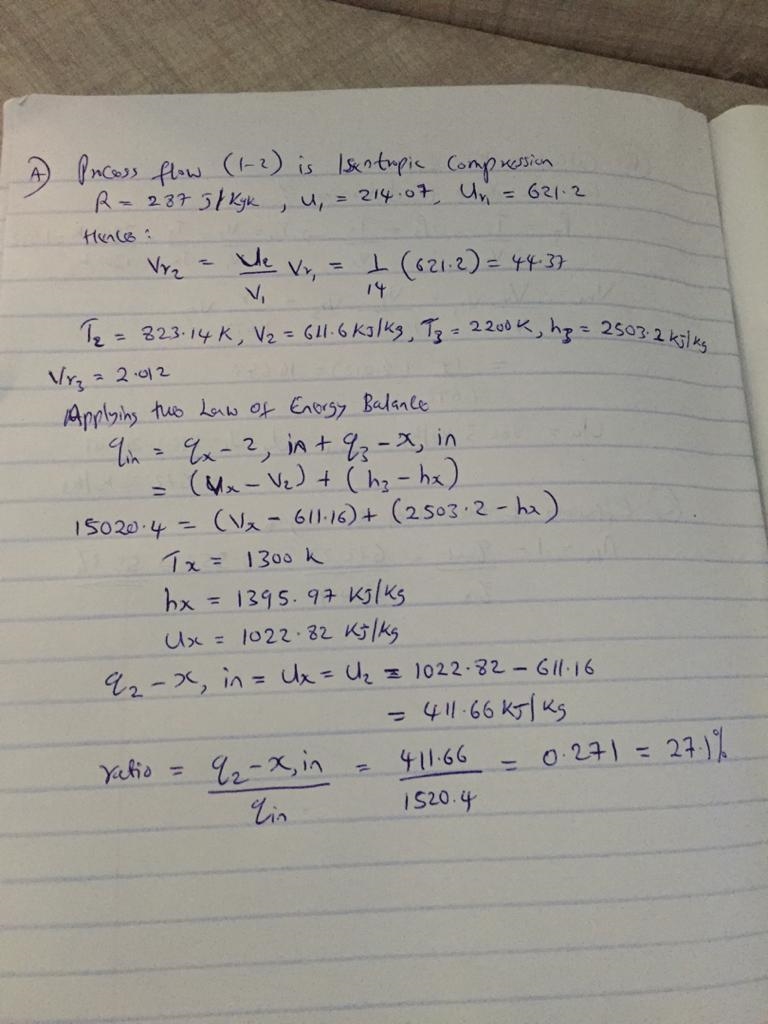 A) Process flow (1-2) is Isentropic Compression
R = 287 J/Kgk, u₁ = 214.07, Ur₁ = 621.2
Hence:
Vr₂ = V₂/V₁ Vr₁ = 1/14 (621.2) = 44.37
T₂ = 823.14 K, V₂ = 611.6 KJ/kg, T₃ = 2200K, h₃ = 2503.2 kJ/kg
Vr₃ = 2.012
Applying two Law of Energy Balance
qin = qx-2, in + q3-x, in
= (Ux - V₂) + (h₃ - hx)
15020.4 = (Vx - 611.16) + (2503.2 - hx)
Tx = 1300 k
hx = 1395.97 KJ/Kg
Ux = 1022.82 KJ/Kg
q2-x, in = Ux = U₂ = 1022.82 - 611.16
= 411.66 KJ/Kg
ratio = q2-x, in / qin = 411.66 / 1520.4 = 0.271 = 27.1%